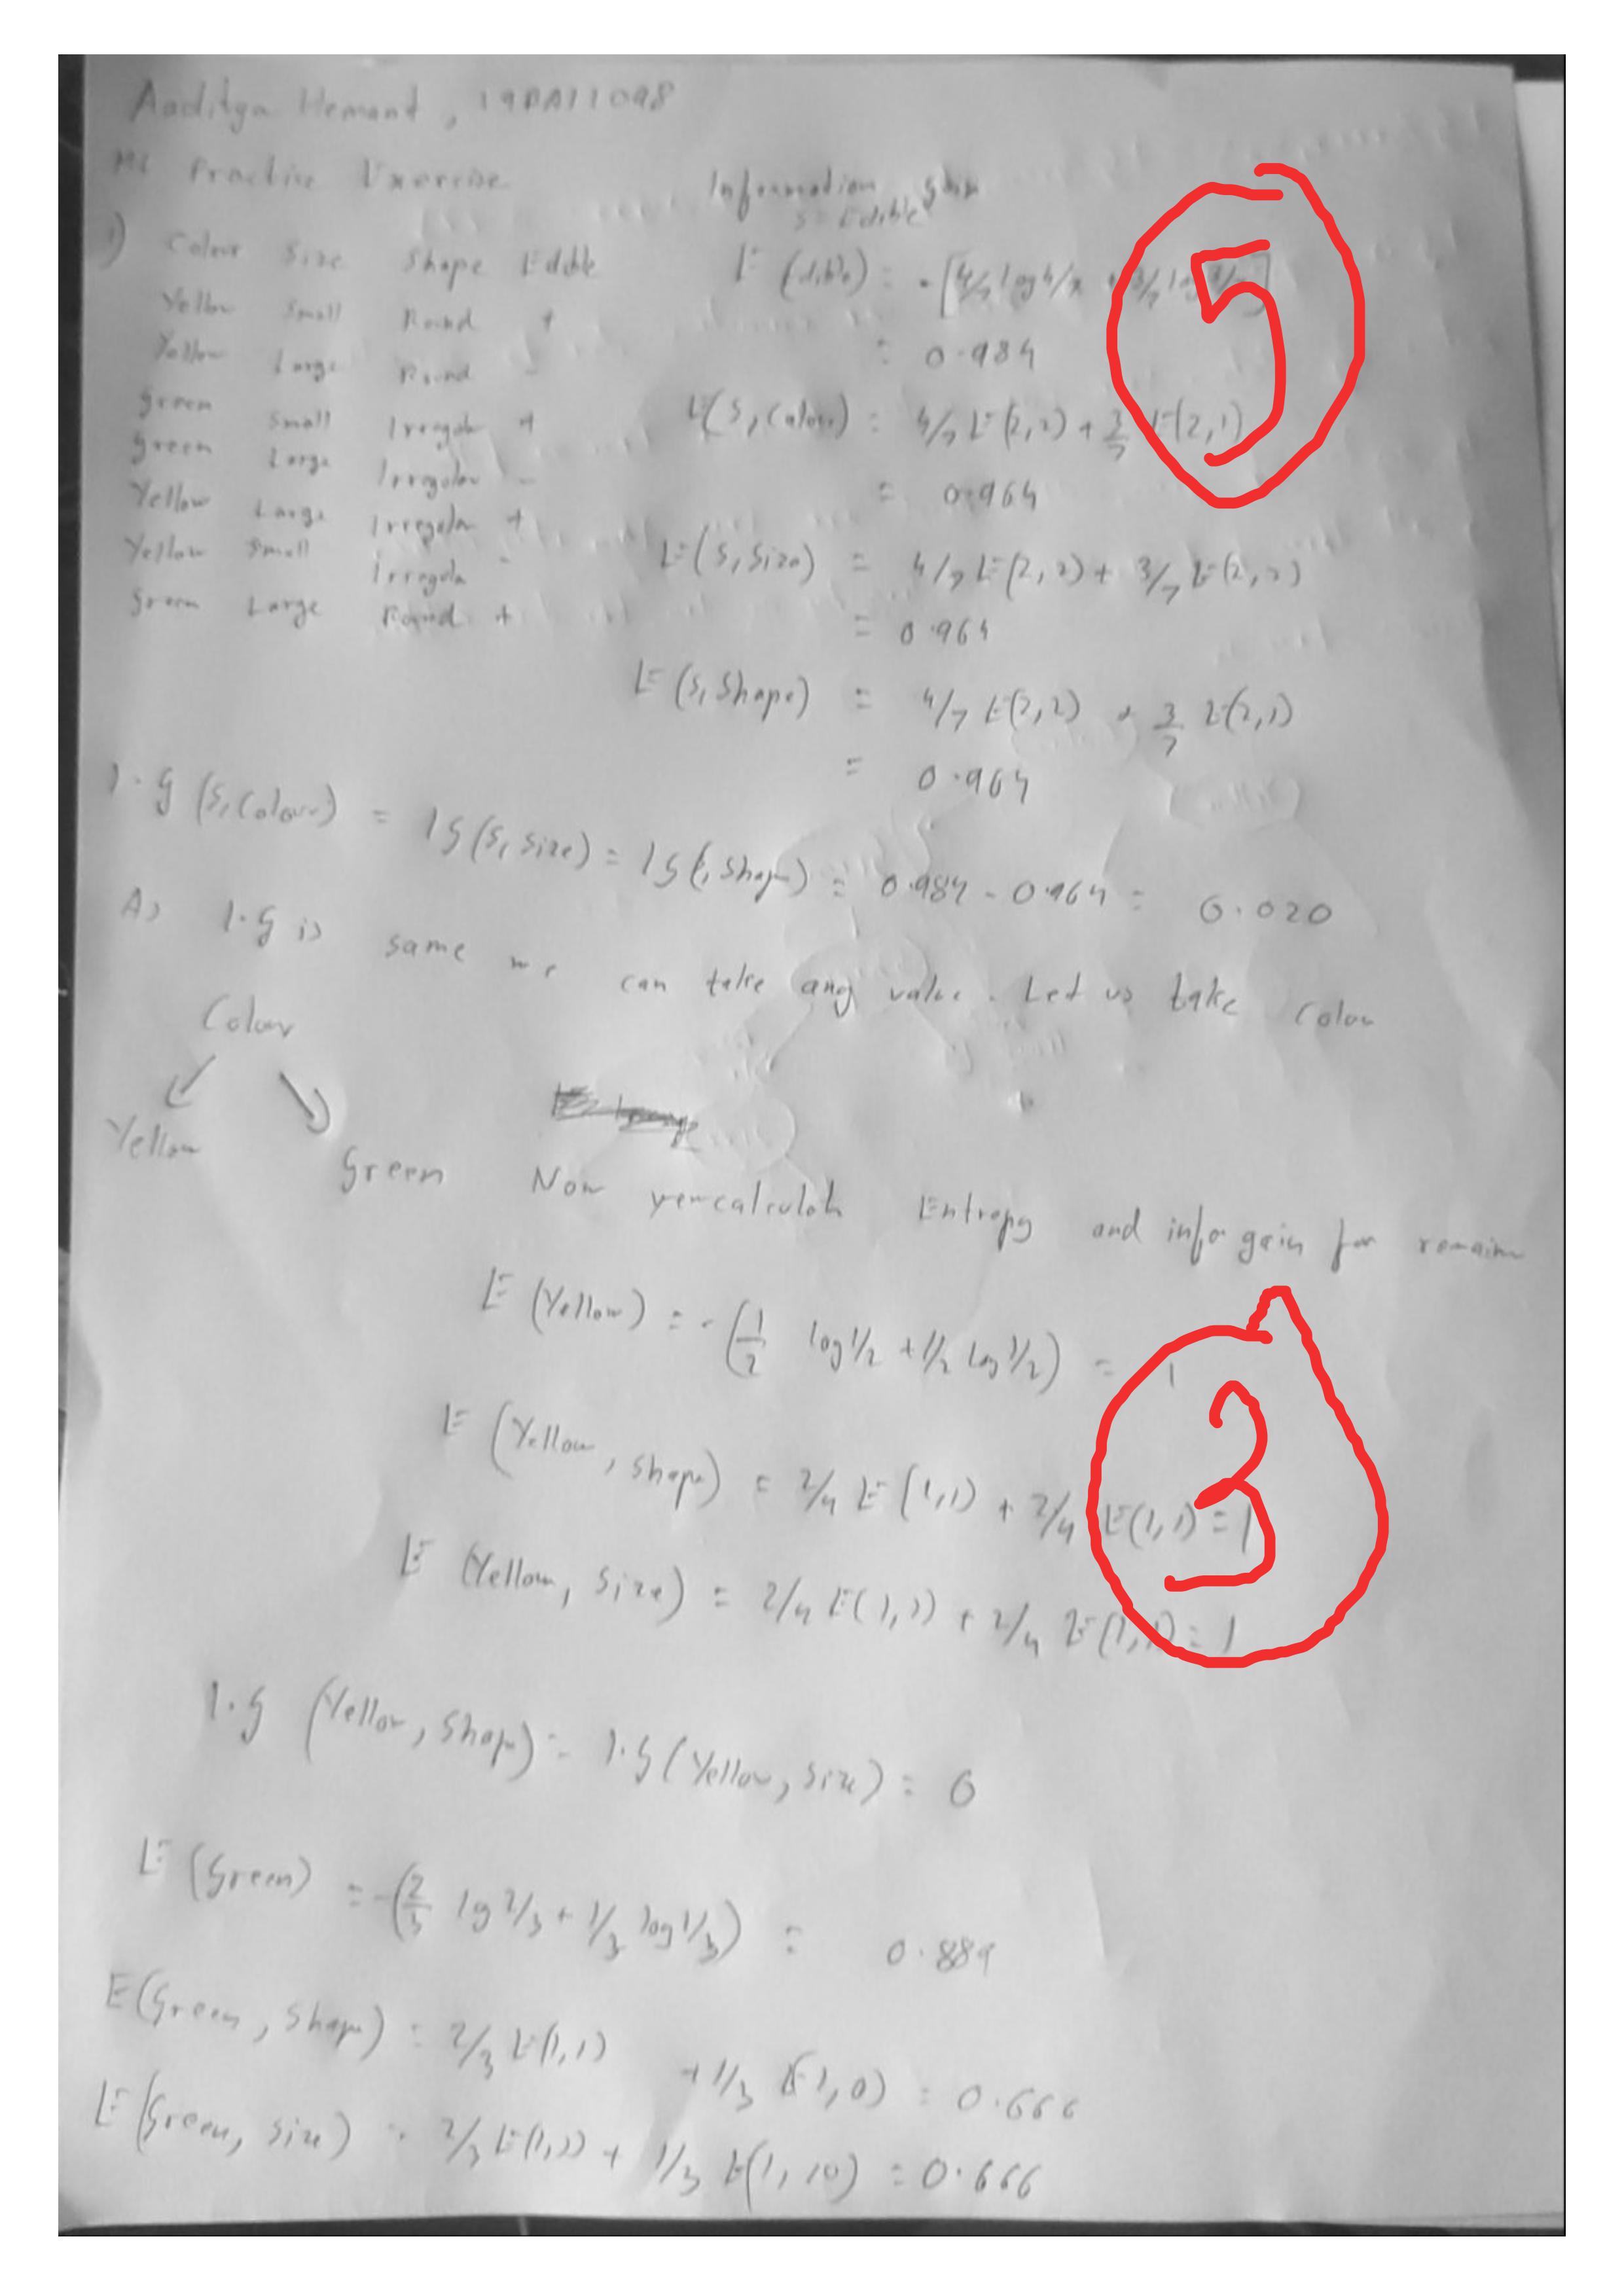 Aaditya Hemant, 19BAI1098
ML Practise Exercise
Information gain
S = Edible
1) Colour Size Shape Edible
Yellow Small Round +
Yellow Large Round -
Green Small Irregular +
Green Large Irregular -
Yellow Large Irregular +
Yellow Small Irregula -
Green Large Round +
E (dible) = -[4/7 log 4/7 + 3/7 log 3/7]
= 0.984
E(S, Colour) = 4/7 E(2,2) + 3/7 E(2,1)
= 0.964
E(S, Size) = 4/7 E(2,2) + 3/7
= 0.964
E(S, Shape) = 4/7 E(2,2) + 3/7 E(2,1)
= 0.964
5
I.G (S, Colour) = IG(S, Size) = IG(, Shape) = 0.984 - 0.964 = 0.020
As I.G is same we can take any value. Let us take Colou
Colour
Yellow
Green
Now calculate Entropy and info gain for remain
E (Yellow) = -(1/2 log 1/2 + 1/2 log 1/2) = 1
E (Yellow, Shape) = 2/4 E(1,1) + 2/4 E(1,1) = 1
E (Yellow, Size) = 2/4 E(1,1) + 2/4 E(1,1) = 1
3
I.G (Yellow, Shape) = I.G (Yellow, Size) = 0
E (Green) = -(2/3 log 2/3 + 1/3 log 1/3) = 0.889
E(Green, Shape) = 2/3 E(1,1) + 1/3 E(1,0) = 0.666
E(Green, Size) = 2/3 E(1,1) + 1/3 E(1,10) = 0.666